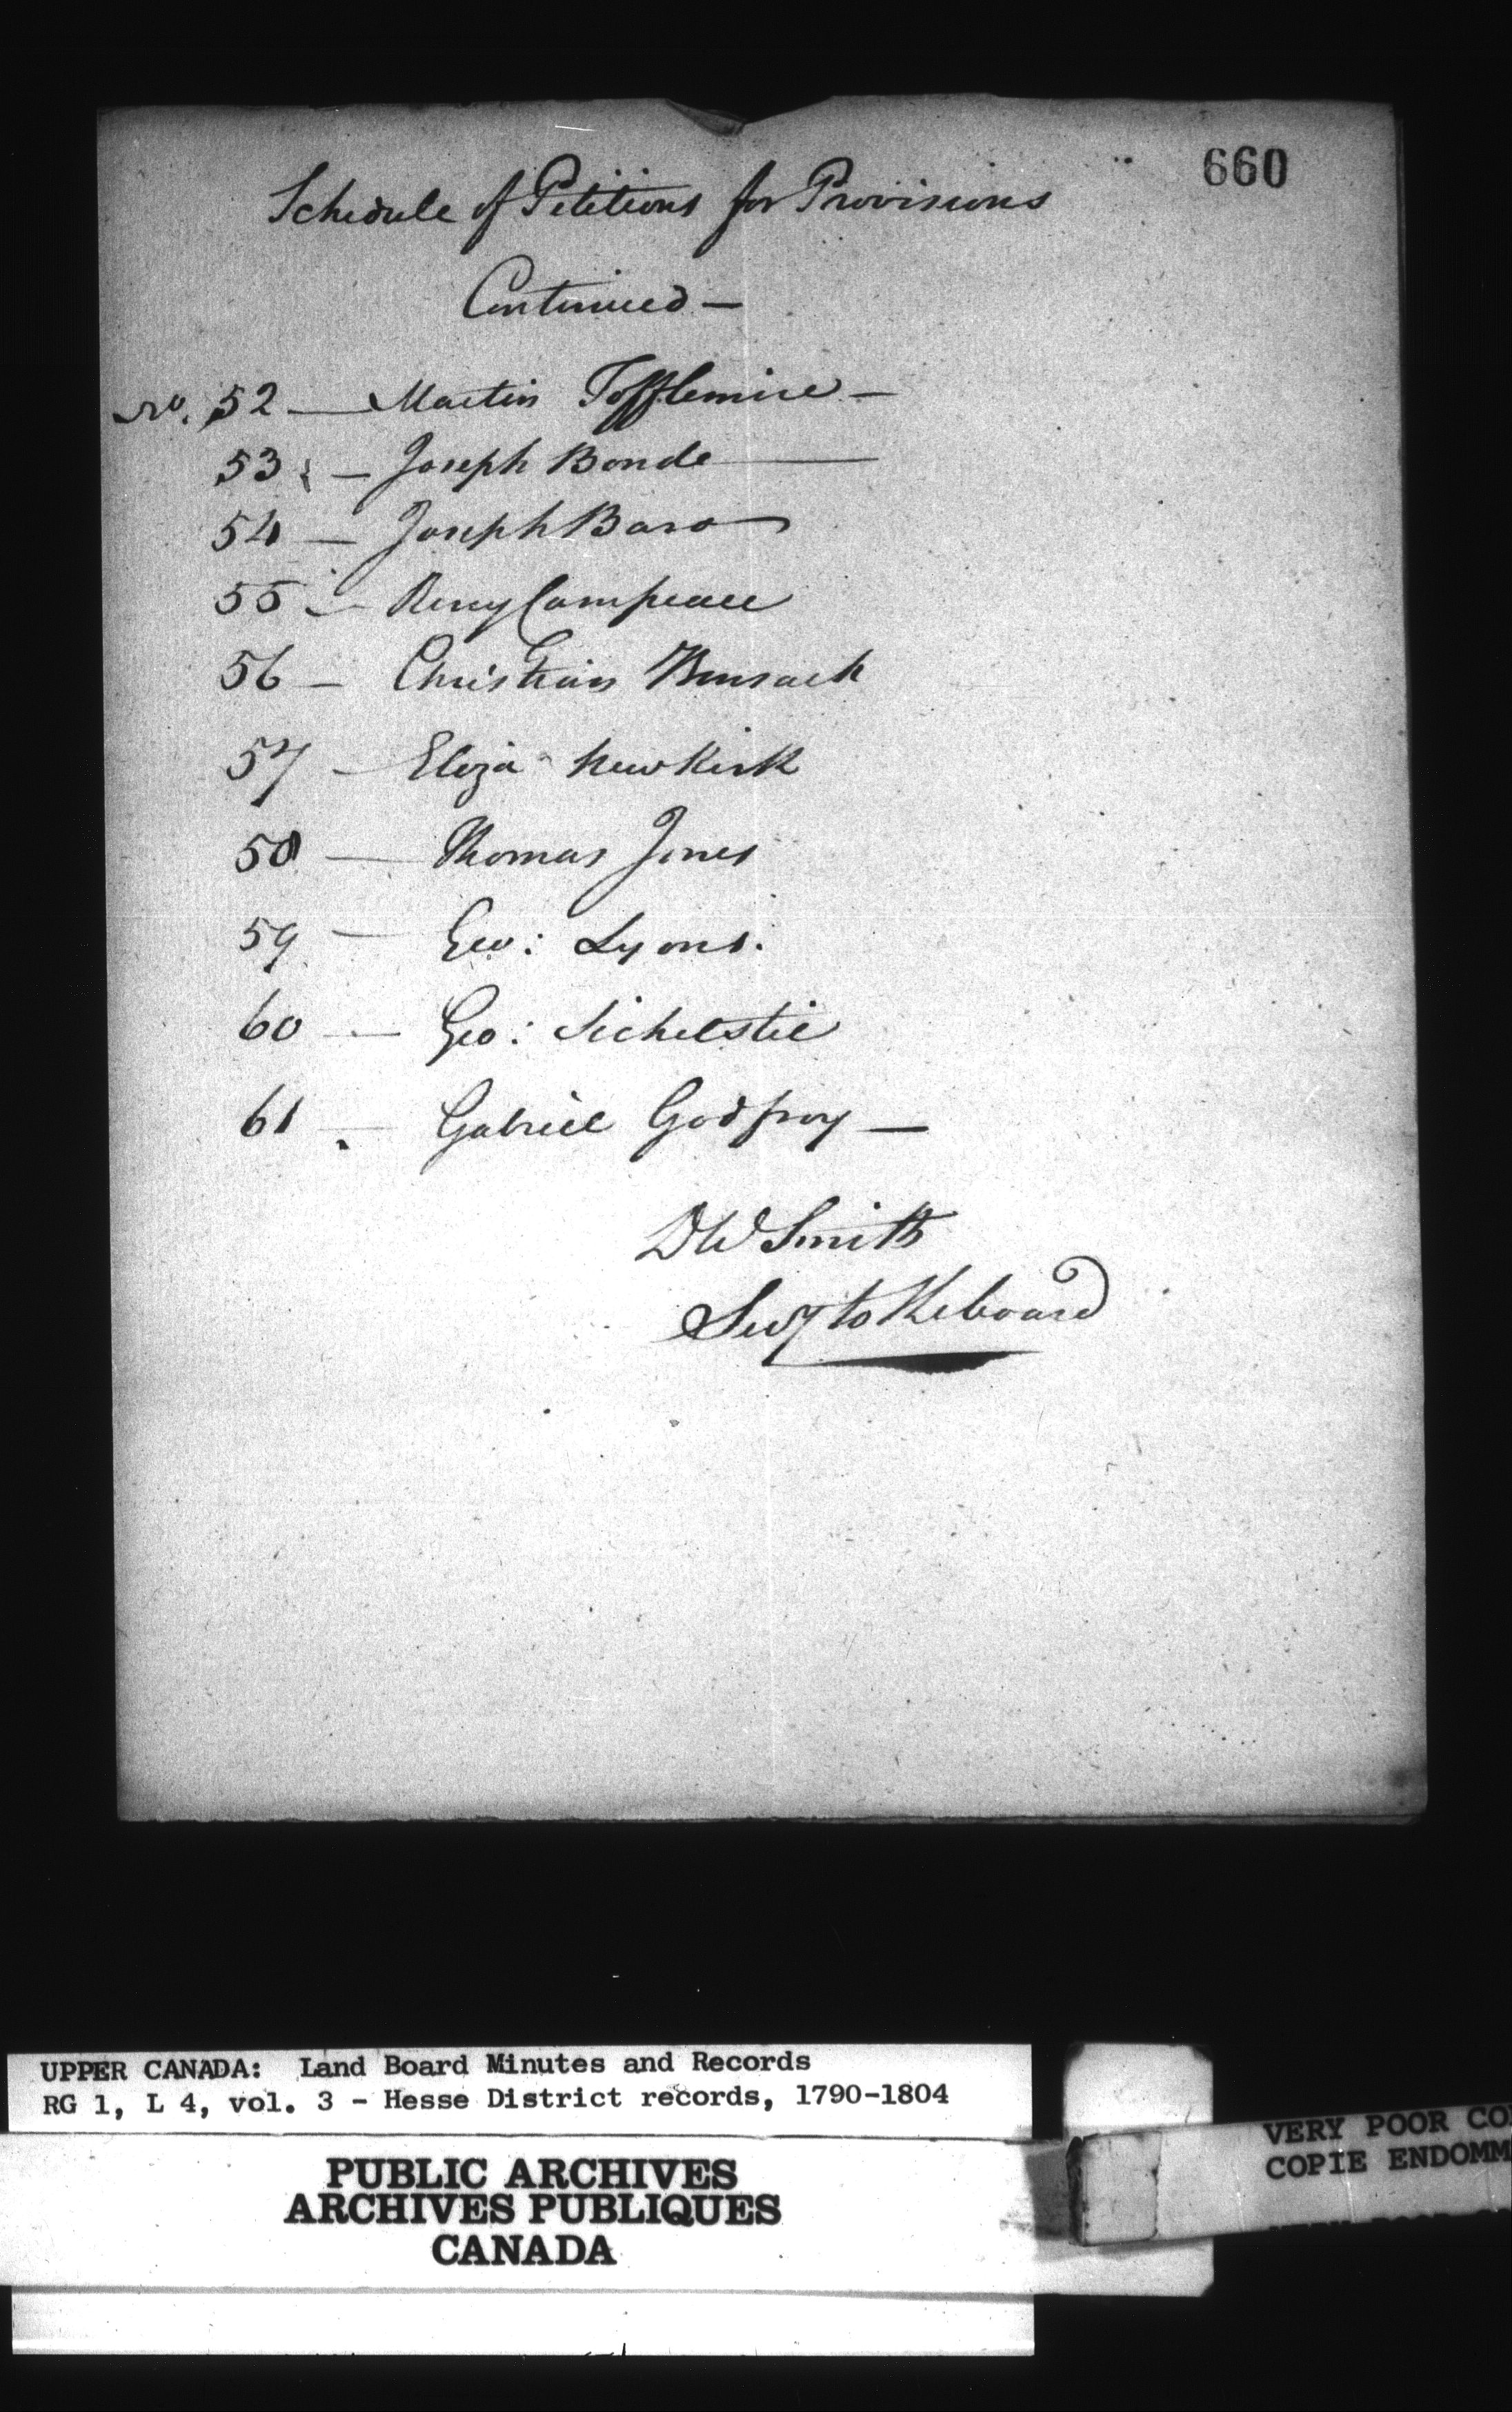 660
Schedule of Petitions for Provisions
Continued —
No. 52 — Martin Tofflemire —
53 — Joseph Bonde —
54 — Joseph Baro
55 — Reny Campeau
56 — Christian
57 — Eliza Newkirk
58 — Thomas Jones
59 — Geo: Lyons.
60 — Geo: Sichelstiel
61 — Gabriel Godfroy —
DW Smith
Secy to the board
UPPER CANADA: Land Board Minutes and Records
RG 1, L 4, vol. 3 - Hesse District records, 1790-1804
PUBLIC ARCHIVES
ARCHIVES PUBLIQUES
CANADA
VERY POOR CO
COPIE ENDOMM